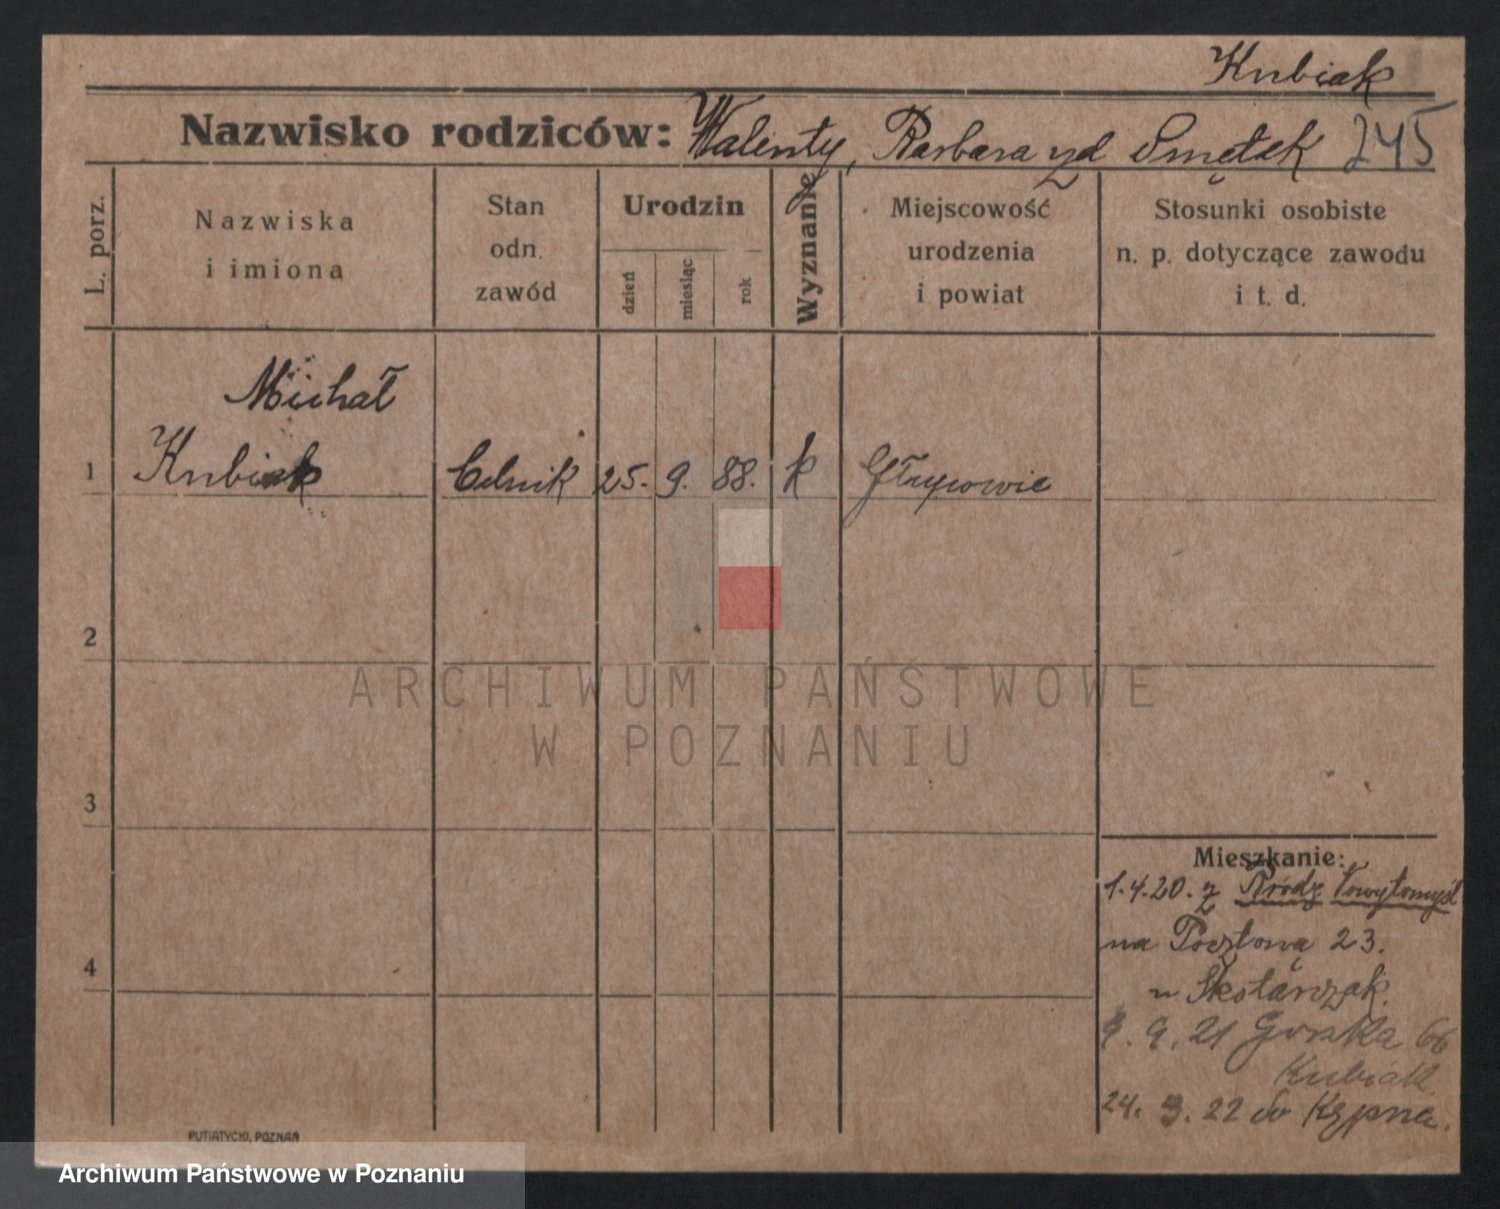 Kubiak
Nazwisko rodziców: Walenty, Barbara zd Smętek 245
L. porz.
Nazwiska
i imiona
Stan
odn.
zawód
Urodzin
dzień
miesiąc
rok
Wyznanie
Miejscowość
urodzenia
i powiat
Stosunki osobiste
n. p. dotyczące zawodu
i t. d.
Michał
1 Kubiak Celnik 25. 9. 88. k
2
ARCHIWUM PAŃSTWOWE
W POZNANIU
3
4
Mieszkanie:
1.4.20. z Nowytomyśl
na Pocztową 23.
u Skotarczak.
9. 21 Górska 66
Kubiak
24. 3. 22 do Kępna.
PUTIATYCKI, POZNAŃ
Archiwum Państwowe w Poznaniu